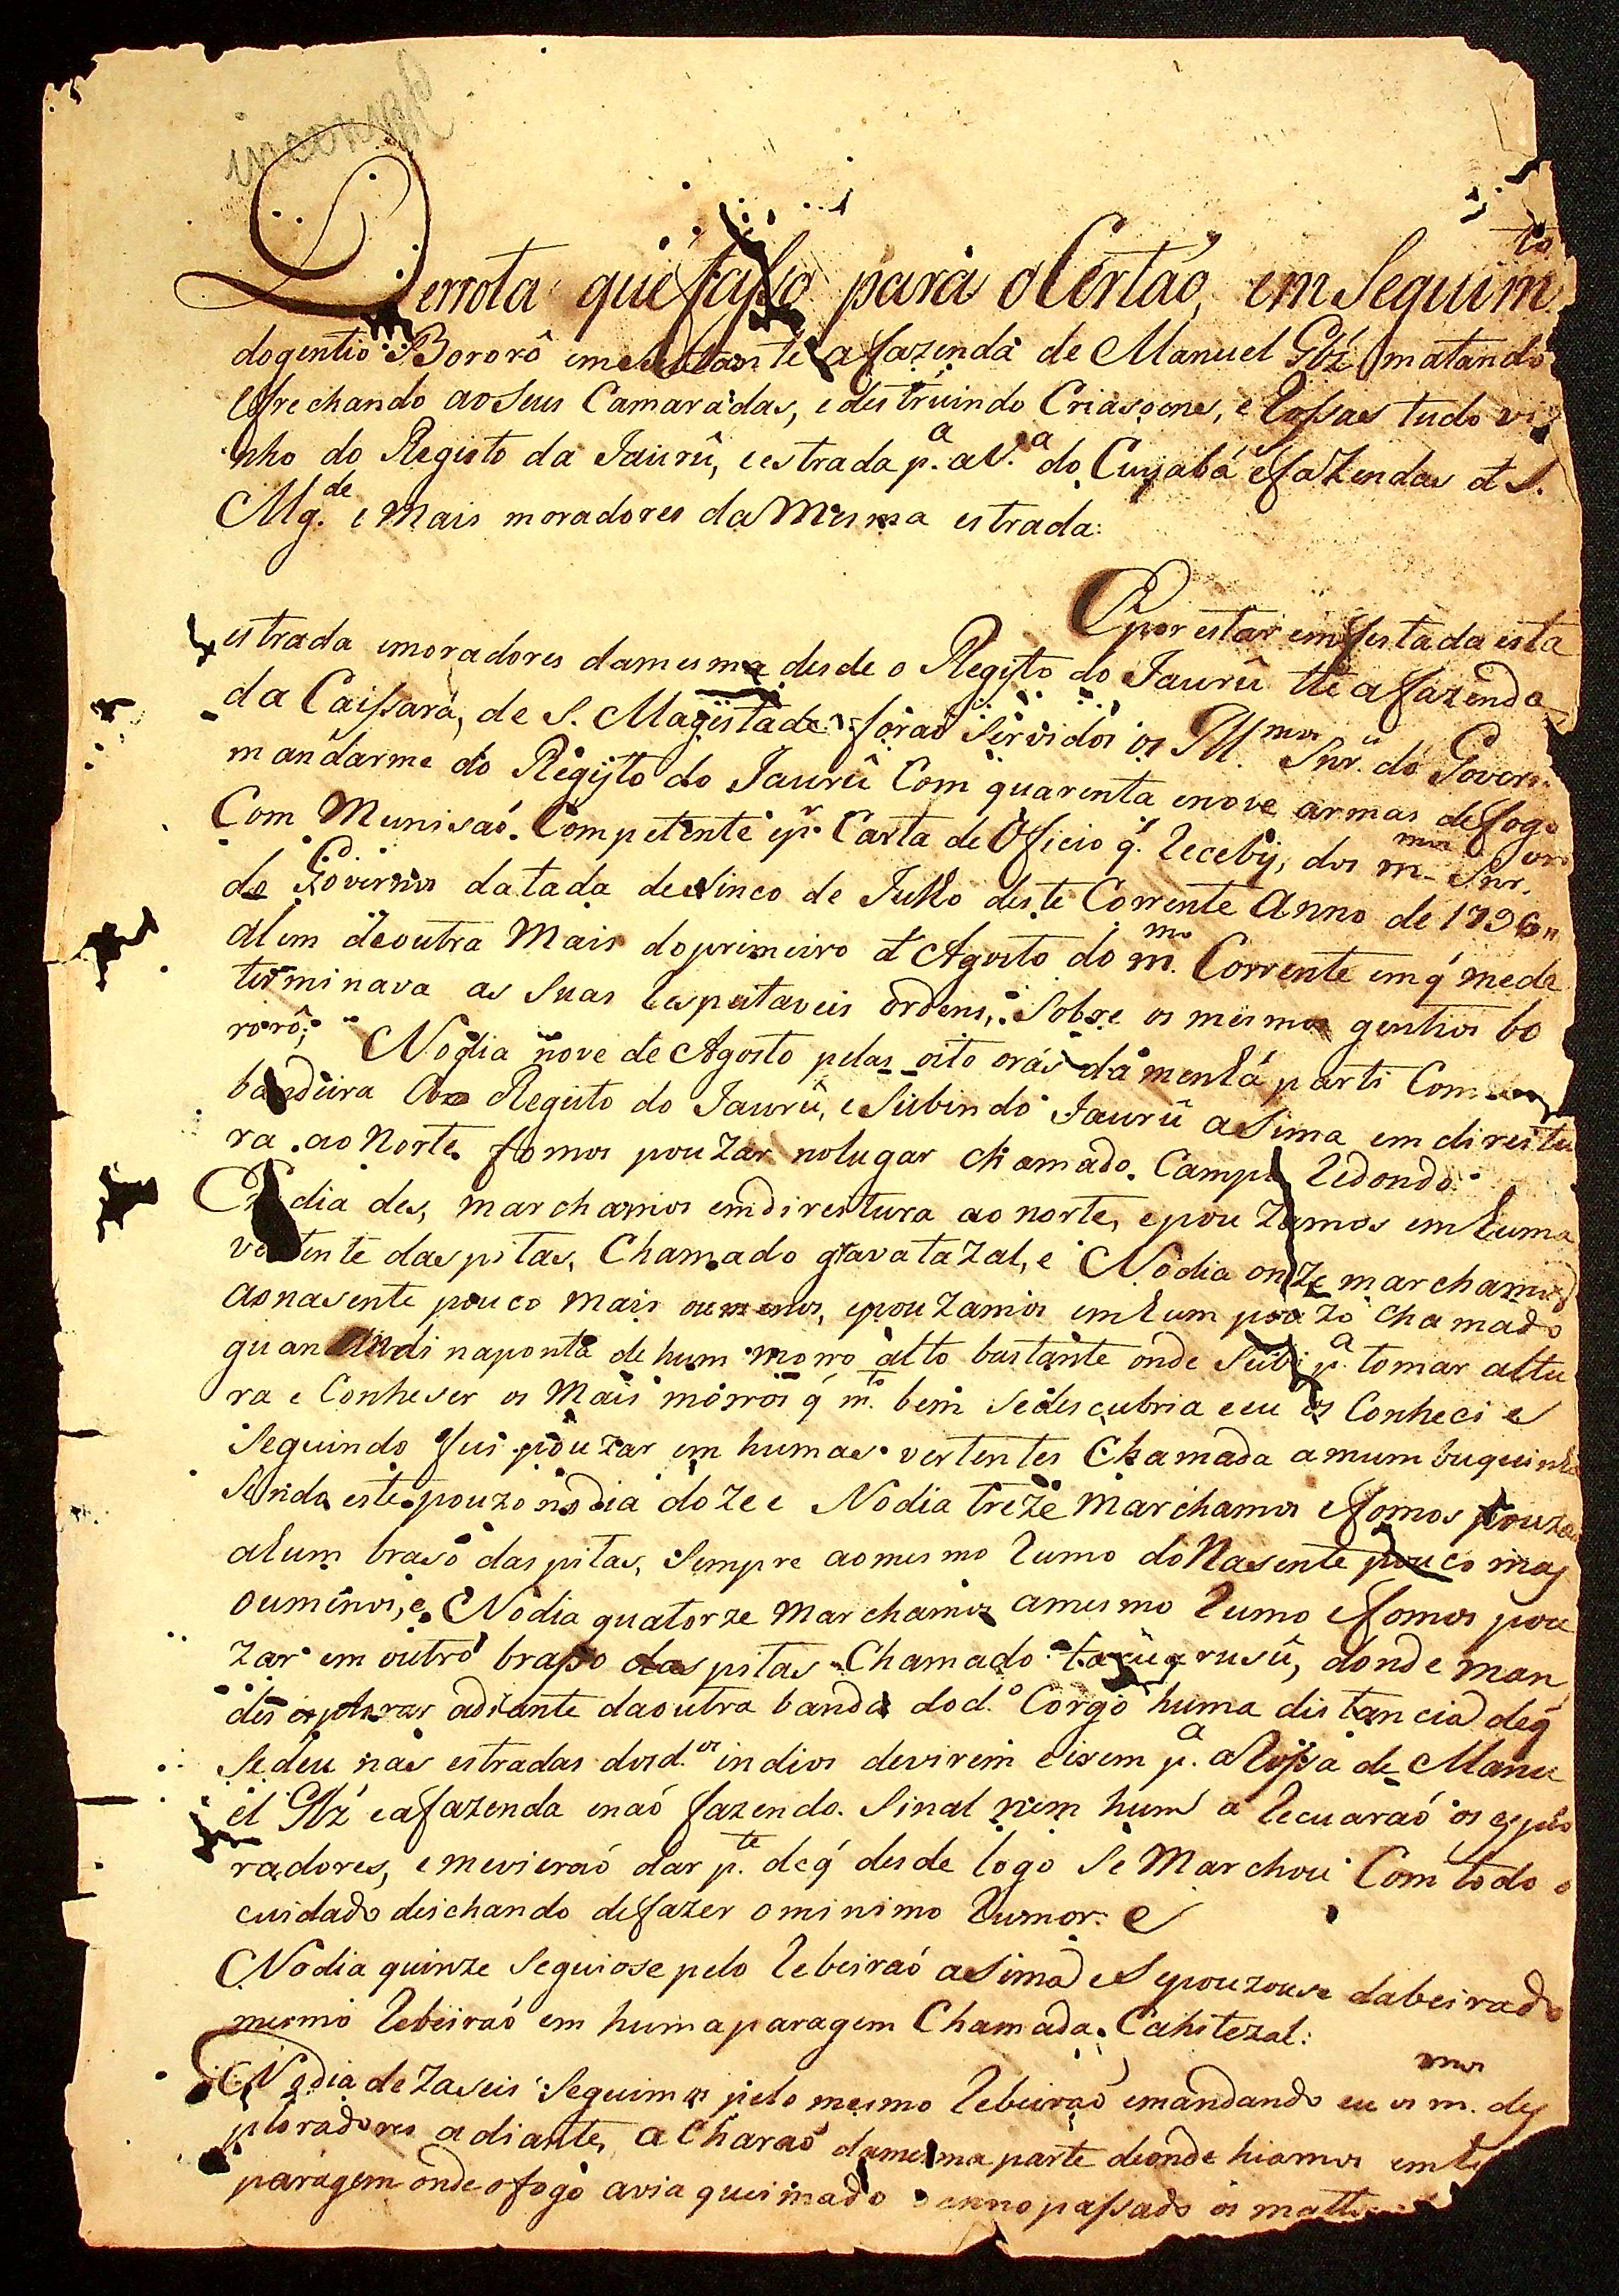 incomp
Derrota que fasso para o Certaó, em Seguim.to
do gentio Bororô a fazenda de Manuel Glz' matando
efrechando aoseus Camarádas, e destruindo Criasoens, e Rossas tudo vizi
nho do Registo da Jaurû, e estrada p.a a V.a do Cuyabá e fazendas d S.
Mg.de e mais moradores da Mesma estrada:
E por estar emfestada esta
estrada emoradores damesma desde o Registo do Jaurû the a fazenda
da Caissara, de S. Magestade foraó Servidos os Ill.mos Snr.es do Govern.
mandarme do Registo do Jaurû Com quarenta enove armas de fogo
Com Munisaó Competente epr. Carta de Oficio q' Recebÿ, dos m.mos Snr.es
do Governo datada de Sinco de Julho deste Corrente Anno de 1796,,
alem deoutra Mais doprimeiro d Agosto do m.mo Corrente emq' mede
terminava as Suas Respeitaveis ordens, Sobre os mesmos gentios bo
rorô; Nodia nove de Agosto pelas oito orás da menhá parti Com
bandeira do Registo do Jaurû, e Subindo Jaurû aSima em direitu
ra ao Norte fomos pouzar nolugar chamado Campo Redondo
E dia des, marchamos emdireitura ao norte, epouzamos emhuma
vertente daspitas, Chamado gravatazal, e Nodia onze marchamos
aonasente pouco mais oumenos, epouzamos emhum pouzo chamado
guanandi naponta de hum morro alto bastante onde Subi p.a tomar altu
ra e Conheser os Mais morros q' m.to bem Sedescubria eeu os Conheci e
Seguindo fui pouzar em humas vertentes Chamada amumbuquinha
Sendo este pouzo nodia doze e Nodia treze Marchamos efomos pouza
ahum brasó daspitas, Sempre aomesmo Rumo doNasente pouco mas
oumenos, e Nodia quatorze Marchamos amesmo Rumo efomos pou
zar em outro brasso daspitas Chamado rusû, donde man
des explorar adiante daoutra banda dod.o Corgo huma distancia deq'
Sedeu nas estradas dosd.os indios devirem eirem p.a aRossa de Manu
el Glz' eafazenda enaó fazendo Sinal nem hum a Recuaraó os explo
radores, emevieraó dar p.te deq' desde logo Se Marchou Com todo o
cuidado deichando defazer ominimo Rumor. E
Nodia quinze Seguiose pelo Rebeiraó aSima e Sepouzouse dabeirado
mesmo Rebeiraó em humaparagem Chamada Cahitezal:
Nodia dezaseis Seguimos pelo mesmo Rebeiraó emandando eu os m.mos des
ploradores adiante, aCharaó damesma parte deonde hiamos emhu
paragem onde ofogo avia queimado o annopassado os matto